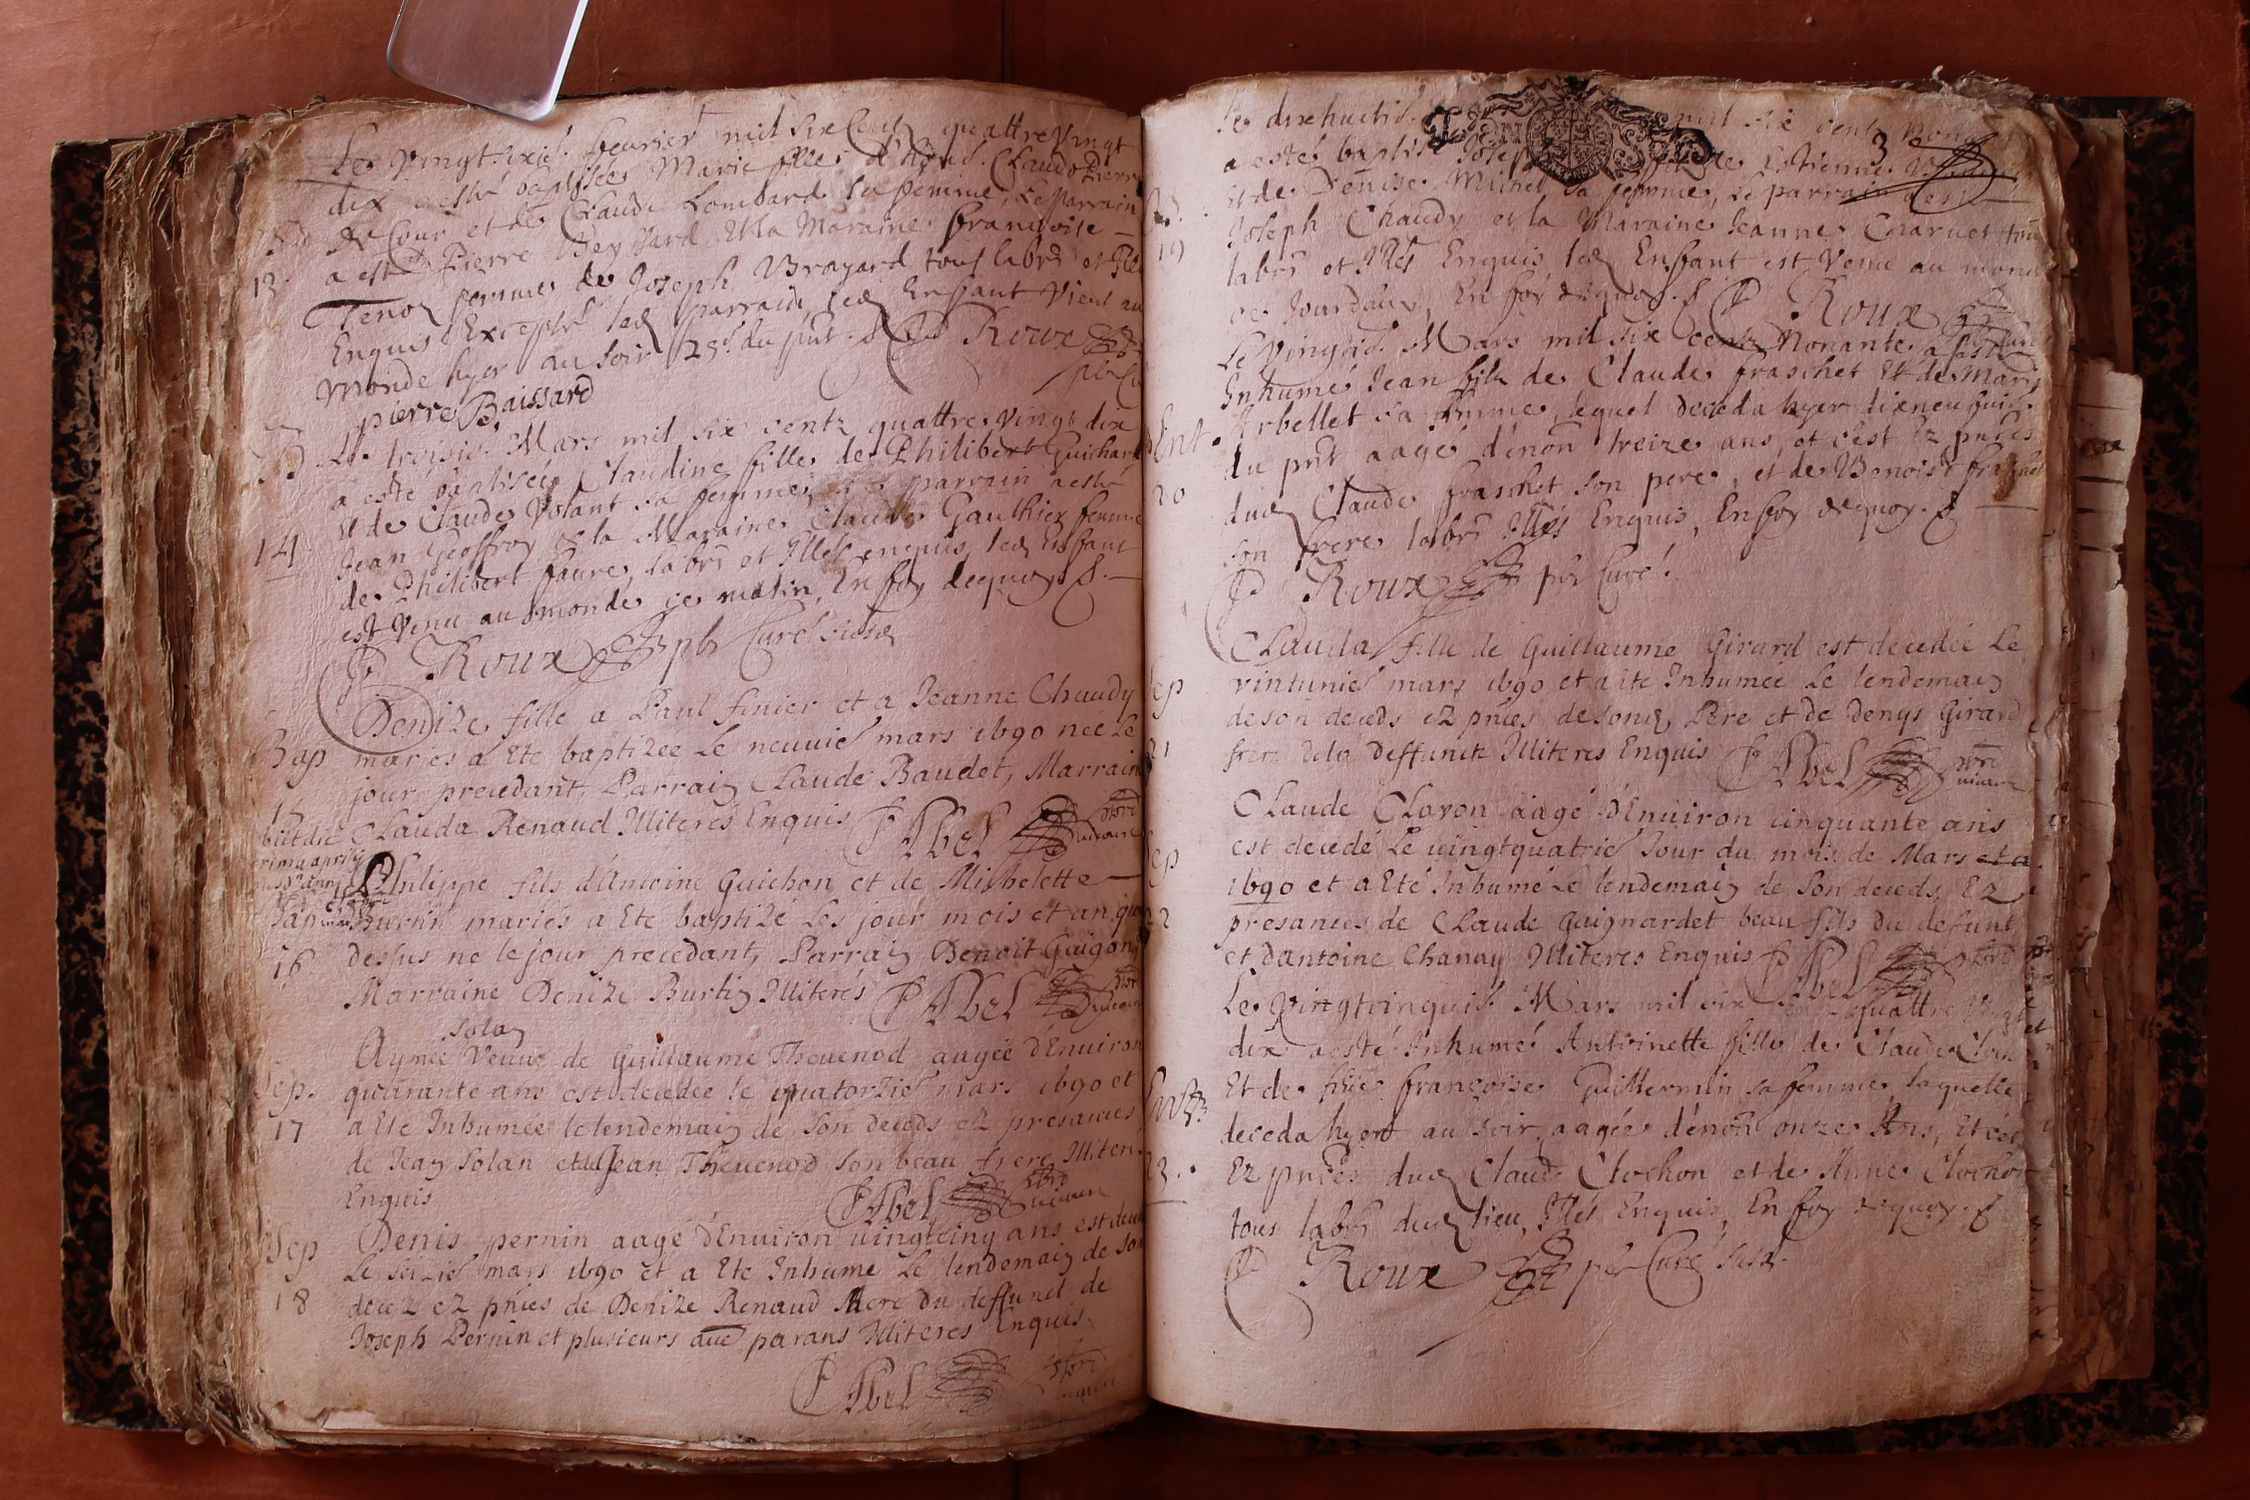 Le Vingtsixie. feurier mil six Cents quattre Vingt
dix a esté baptisée Marie fille d'hon. Claude Pierre
De Cour et de Claude Lombard sa femme, Le parrain
a esté Pierre Beyssard Et la Maraine françoise
13.
femme de Joseph Brayard tous labrs et Illes
Enquis Excepté led parrain, led Enfant Vient au
monde hyer au soir 25e. du pnt. Roux
pierre Baissard
Le troisie. Mars mil six centz quattre Vingt dix
a esté baptisée Claudine fille de Philibert Guichard
et de Claude Volant sa femme, le parrain a esté
14
Jean Geoffroy & la Maraine Claude Gauthier femme
de Philibert faure, labrs et Illes enquis, led Enfant
est Venu au monde ce matin, En foy dequoy
Roux pbr Curé susd
Denize fille a Paul finier et a Jeanne Chaudy
Bap mariés a Ete baptizée Le neuuie mars 1690 nee Le
jour precedant, Parrain Claude Baudet, Marraine
15
Clauda Renaud Illiterés Enquis P Abel pbre uicaire
Philippe fils d'Antoine Guichon et de Michelette
Bap Burtin mariés a Ete baptizé Les jour mois et an que
16 dessus ne le jour precedant, Parrain Benoit Guigon
Marraine Denize Burtin Illiterés P Abel pbre uicaire
Solan
Aymée Veuue de Guillaume Theuenod aagée d'Enuiron
Sep. quarante ans est decedée le quatorzie mars 1690 et
17 a Ete Inhumée le lendemain de son deceds ez presances
de Jean Solan et de Jean Theuenod son beau frere Illiterés
Enquis P Abel pbre uicaire
Sep Denis pernin aagé d'Enuiron uingtcinq ans est decedé
Le seizie mars 1690 et a Ete Inhumé Le lendemain de son
18 decez ez pnces de Denize Renaud Mere du deffunct de
Joseph Pernin et plusieurs aue parans Illiteres Enquis
P Abel pbre
Le dixhuitie. mil six cent nonante
3
a esté baptisé Joseph Estienne
et de Denise Michel sa femme, Le parrain a esté
19 Joseph Chaudy et la Maraine Jeanne Charuet tous
labrs et Illes Enquis, led Enfant est Venu au monde
ce Jourdhuy, En foy dequoy. Roux
Le Vingtie. Mars mil six centz Nonante, a esté
Inhumé Jean fils de Claude fraschet Et de Marie
Ent. Arbellet sa femme, lequel deceda hyer dixneuf
du pnt aagé d'énon treize ans, et c'est Ez pnces
20 dud Claude fraschet son pere, et de Benoist fraschet
son frere labrs Illes Enquis, En foy dequoy.
Roux pbr Curé.
Clauda fille de Guillaume Girard est decedée Le
Sep vintunie mars 1690 et a ete Inhumée Le lendemain
de son deceds ez pnces de sond Pere et de Denys Girard
21 frere dela deffuncte Illiteres Enquis P Abel pbre uicaire
Claude Cloron aagé d'Enuiron cinquante ans
Sep est decedé Le uingtquatrie Jour du mois de Mars et a
1690 et a Eté Inhumé Le lendemain de son deceds, Ez
22 presances de Claude Guignardet beau fils du defunt
et d'antoine Chanay Illiteres Enquis P Abel pbre
Le Vingtcinquie. Mars mil six cent quattre Vingt
dix a esté Inhumé Antoinette fille de Claude
Et de françoise Guillermin sa femme, laquelle
deceda hyer au soir, aagée d'énon onze Ans, Et c'est
23. Ez pnces dud Claude Clochon et de Anne Clochon
tous labrs dud lieu, Illes Enquis, En foy dequoy.
Roux pbr Curé susd.